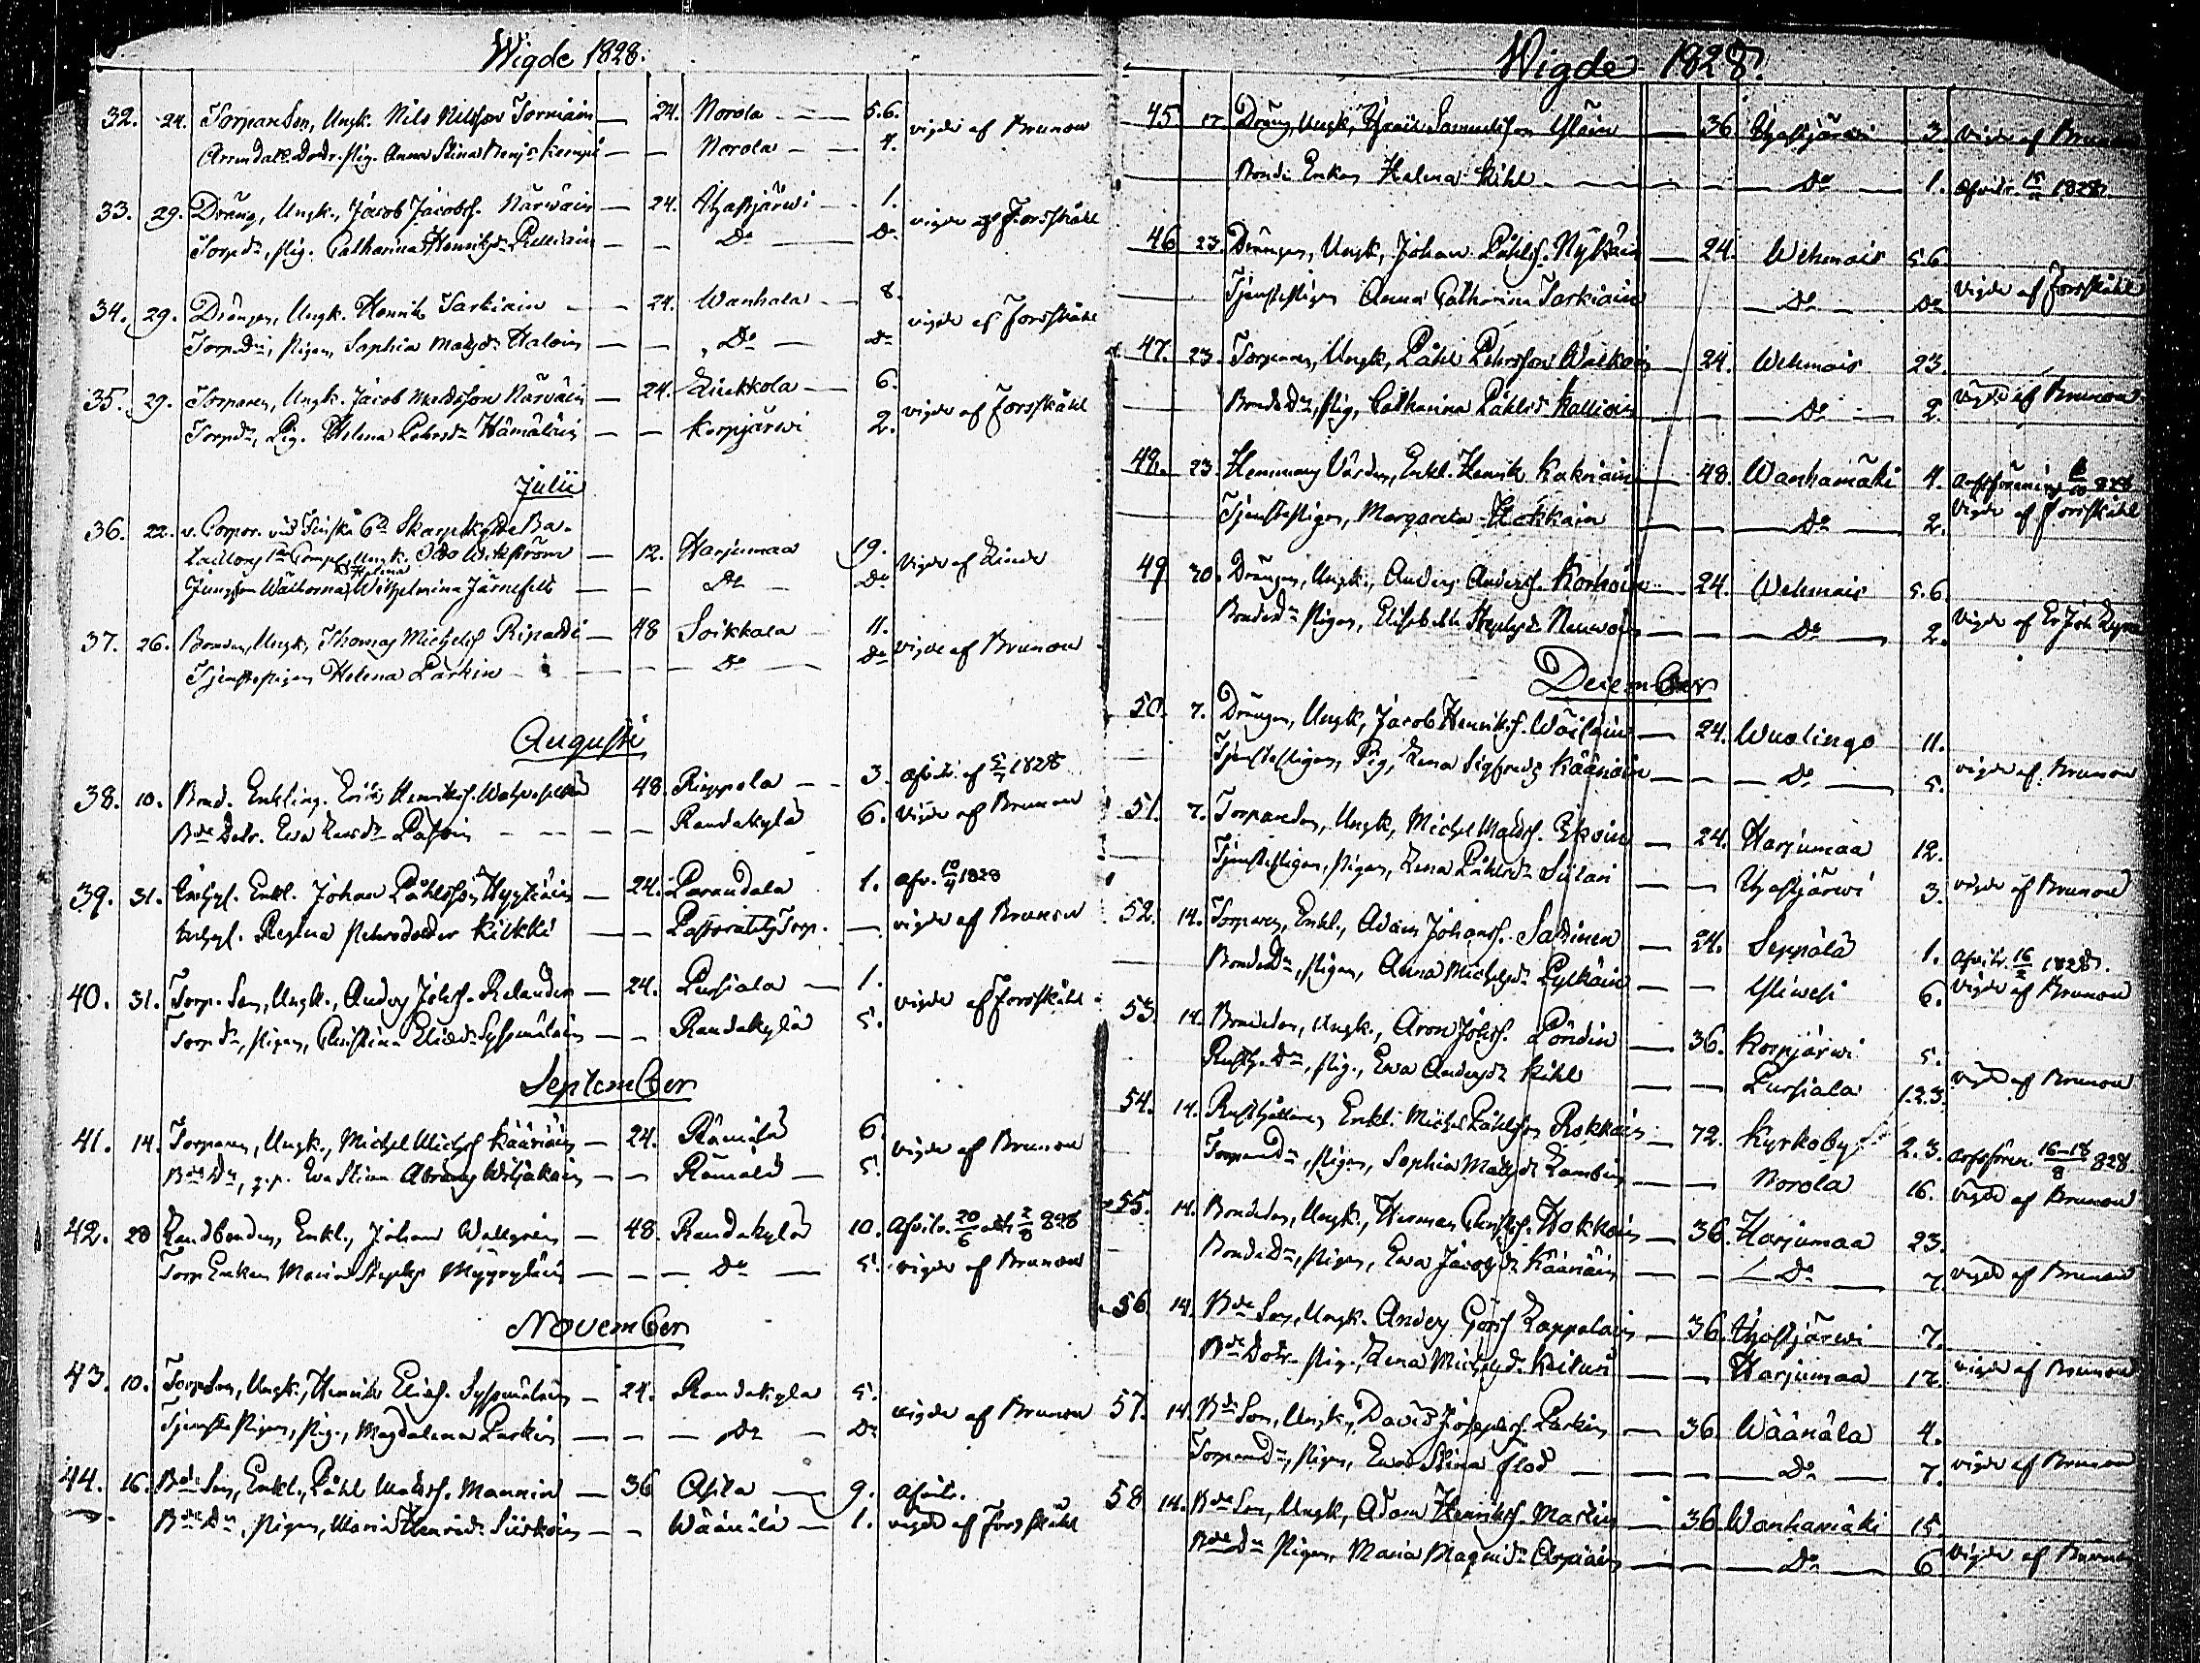 Wigde 1828.
32. 24. Torparson, Ungk. Nils Nilsson Torniain — 24. Norola — 5.6. vigde af Brunow
Dotr. Pig. Anna Stina Benj:dr Kemppi — — Norola — 4.
33. 29. Dräng, Ungk., Jacob Jacobss. Närväin — 24. Hyasjärwi — 1. vigde af Forsskåhl
Torp.dr, Pig. Catharina Henriks:dr Pelliain — — Do — Do
34. 29. Drängen, Ungk. Henrik Tarkiain — 24. Wanhala — 8. vigde af Forsskåhl
Torp.dr, Pigan, Sophia Mats:dr Haloin — — Do — Do
35. 29. Torparen, Ungk. Jacob Matsson Närväin — 24. Liukkola — 6. vigde af Forsskåhl
Torp.dr, Pig. Helena Pehrs:dr Hämäläin — — Korpjärwi 2.
Julii
36. 22. v. Corpor. vid Finska 6te Skarpskytte Ba-
taillons 1ta Comp. Ungk. Otto Wikström — 12. Harjumaa 19. Vigde af Linde
Helena
Jungfrun Wälborna Wilhelmina Järnefelt — — Do — Do
37. 26. Bonden, Ungk. Thomas Michelss. Ripatti — 48 Soikkala 11. vigde af Brunow
Tjenstepigan Helena Parkin — — Do — Do
Augusti
38. 10. Bond. Enkling. Erik Henrikss. — 48. Rieppola — 3. Afvitt. af 5/7 1828
Bde Dotr. Ewa Lars:dr Pasoin — — Randakylä 6. Vigde af Brunow
39. 31. Inhys. Enkl. Johan Påhlsson Hyytiäin — 24. Parandala 1. Afv. 10/4 1828
Inhys. Regina Pehrsdotter Kiikki — — Pastorats Torp. — vigde af Brunow
40. 31. Torp. Son, Ungk., Anders Johss. Relander — 24. Pursiala — 1. vigde af Forsskåhl
Torp.dr, Pigan, Christina Elias:dr Syssmäläin — — Randakylä 5.
September
41. 14. Torparen, Ungk., Michel Michss. Kääriäin — 24. Rämälä 6. vigde af Brunow
Bde Dr, Ewa Stina Abrams Wiljakain — — Rämälä — 5.
42. 28 Landbonden, Enkl., Johan Wallgrén — 48. Randakylä 10. Afvitt. 20/6 och 2/8 828
Torp Enkan Maria Steph:dr Myyryläin — — — Do — 5. vigde af Brunow
November
43. 10. Torp Son, Ungk., Henrik Eliass. Syssmäläin — 24. Randakylä 5. vigde af Brunow
Tjenste Pigan, Pig., Magdalena Parkin — — — Do — Do
44. 16. Bde Son, Enkl., Påhl Matss. Mannin — 36 Asila — 9. Afvitt.
Bde Dr, Pigan, Maria Henriks:dr Siiskoin — — Wäänälä — 1. vigde af Forsskåhl
Wigde 1828.
45 17 Dräng, Ungk, Isaac Samuelsson Yläin — 36 Hyasjärwi 3. Vigde af Brunow
Bonde Enkan Helena Kihl — — — Do — 1. Afvittr. 1828.
46 23. Drängen, Ungk, Johan Påhlss. Nykäin — 24. Wehmais 5.6
Tjenstepigan Anna Catharina Tarkiain — Do — Do Vigde af Forsskåhl
47. 23. Torparen, Ungk, Påhl Pehrsson Walkoin — 24. Wehmais 23.
Bonde Dr, Pig, Catharina Påhls:dr Kallioin — — Do — 2. Vigde af Brunow
48. 23. Hemmans Vården, Enkl. Henrik Kakriain — 48. Wanhamäki 4. Arfsförening 828
Tjenstepigan, Margareta Hokkain — — Do — 2. Vigde af Forsskåhl
49 30. Drängen, Ungk., Anders Anderss. Korhoin — 24. Wehmais 5.6.
Bonde Dr Pigan, Elisabeth Steph:dr Neuwoin — — Do — 2. Vigde af
December
50. 7. Drängen, Ungk., Jacob Henrikss. Wäisäin — 24. Wuolingo 11.
Tjenstepigan, Pig, Lena Sigfreds:dr Kääriäin — — Do — 5. vigde af Brunow
51. 7. Torpareson, Ungk, Michel Matss. Ejkoin — 24. Harjumaa 12.
Tjenstepigan, Pigan, Lena Påhls:dr Siitari — — Hyasjärwi 3. vigde af Brunow
52. 14. Torparen, Enkl., Adam Johanss. Sassinen — 24. Seppälä 1. Afvittr. 16/2 1828.
Bonde Dr, Pigan, Anna Michels:dr Pylkäin — — Yliwesi 6. Vigde af Brunow
53. 14. Bondeson, Ungk., Aron Johss. Pöndin — 36. Korpjärwi 5.
Rusth. Dr, Pig., Ewa Anders:dr Kihl — — Pursiala 1.2.3. vigde af Brunow
54. 14. Rusthållaren Enkl. Michel Påhlsson Rokkain — 72. Kyrkoby 2.3. Arfsfören. 16–18/8 828
Torpare Dr, Pigan, Sophia Mats:dr Lambin — — Norola 16. Vigde af Brunow
55. 14. Bondeson, Ungk., Herman Christss. Hokkain — 36. Harjumaa 23.
Bonde Dr, Pigan, Ewa Jacobs:dr Kääriäin — — Do — 7. Vigde af Brunow
56 14. Bde Son, Ungk. Anders Görss. Lappalain — 36. Hyasjärwi 7.
Bde Dotr. Pig., Lena Michels:dr Keituri — — Harjumaa 17. vigde af Brunow
57. 14. Bde Son, Ungk., David Josephss. Parkin — 36. Wäänälä 4.
Torpare Dr, Pigan, Ewa Stina Flod — — — Do — 7. vigde af Brunow
58 14. Bde Son, Ungk, Adam Henrikss. Martin — 36. Wanhamäki 15.
Bde Dr Pigan, Maria Magnus:dr Aspiain — — Do — 6 Vigde af Brunow